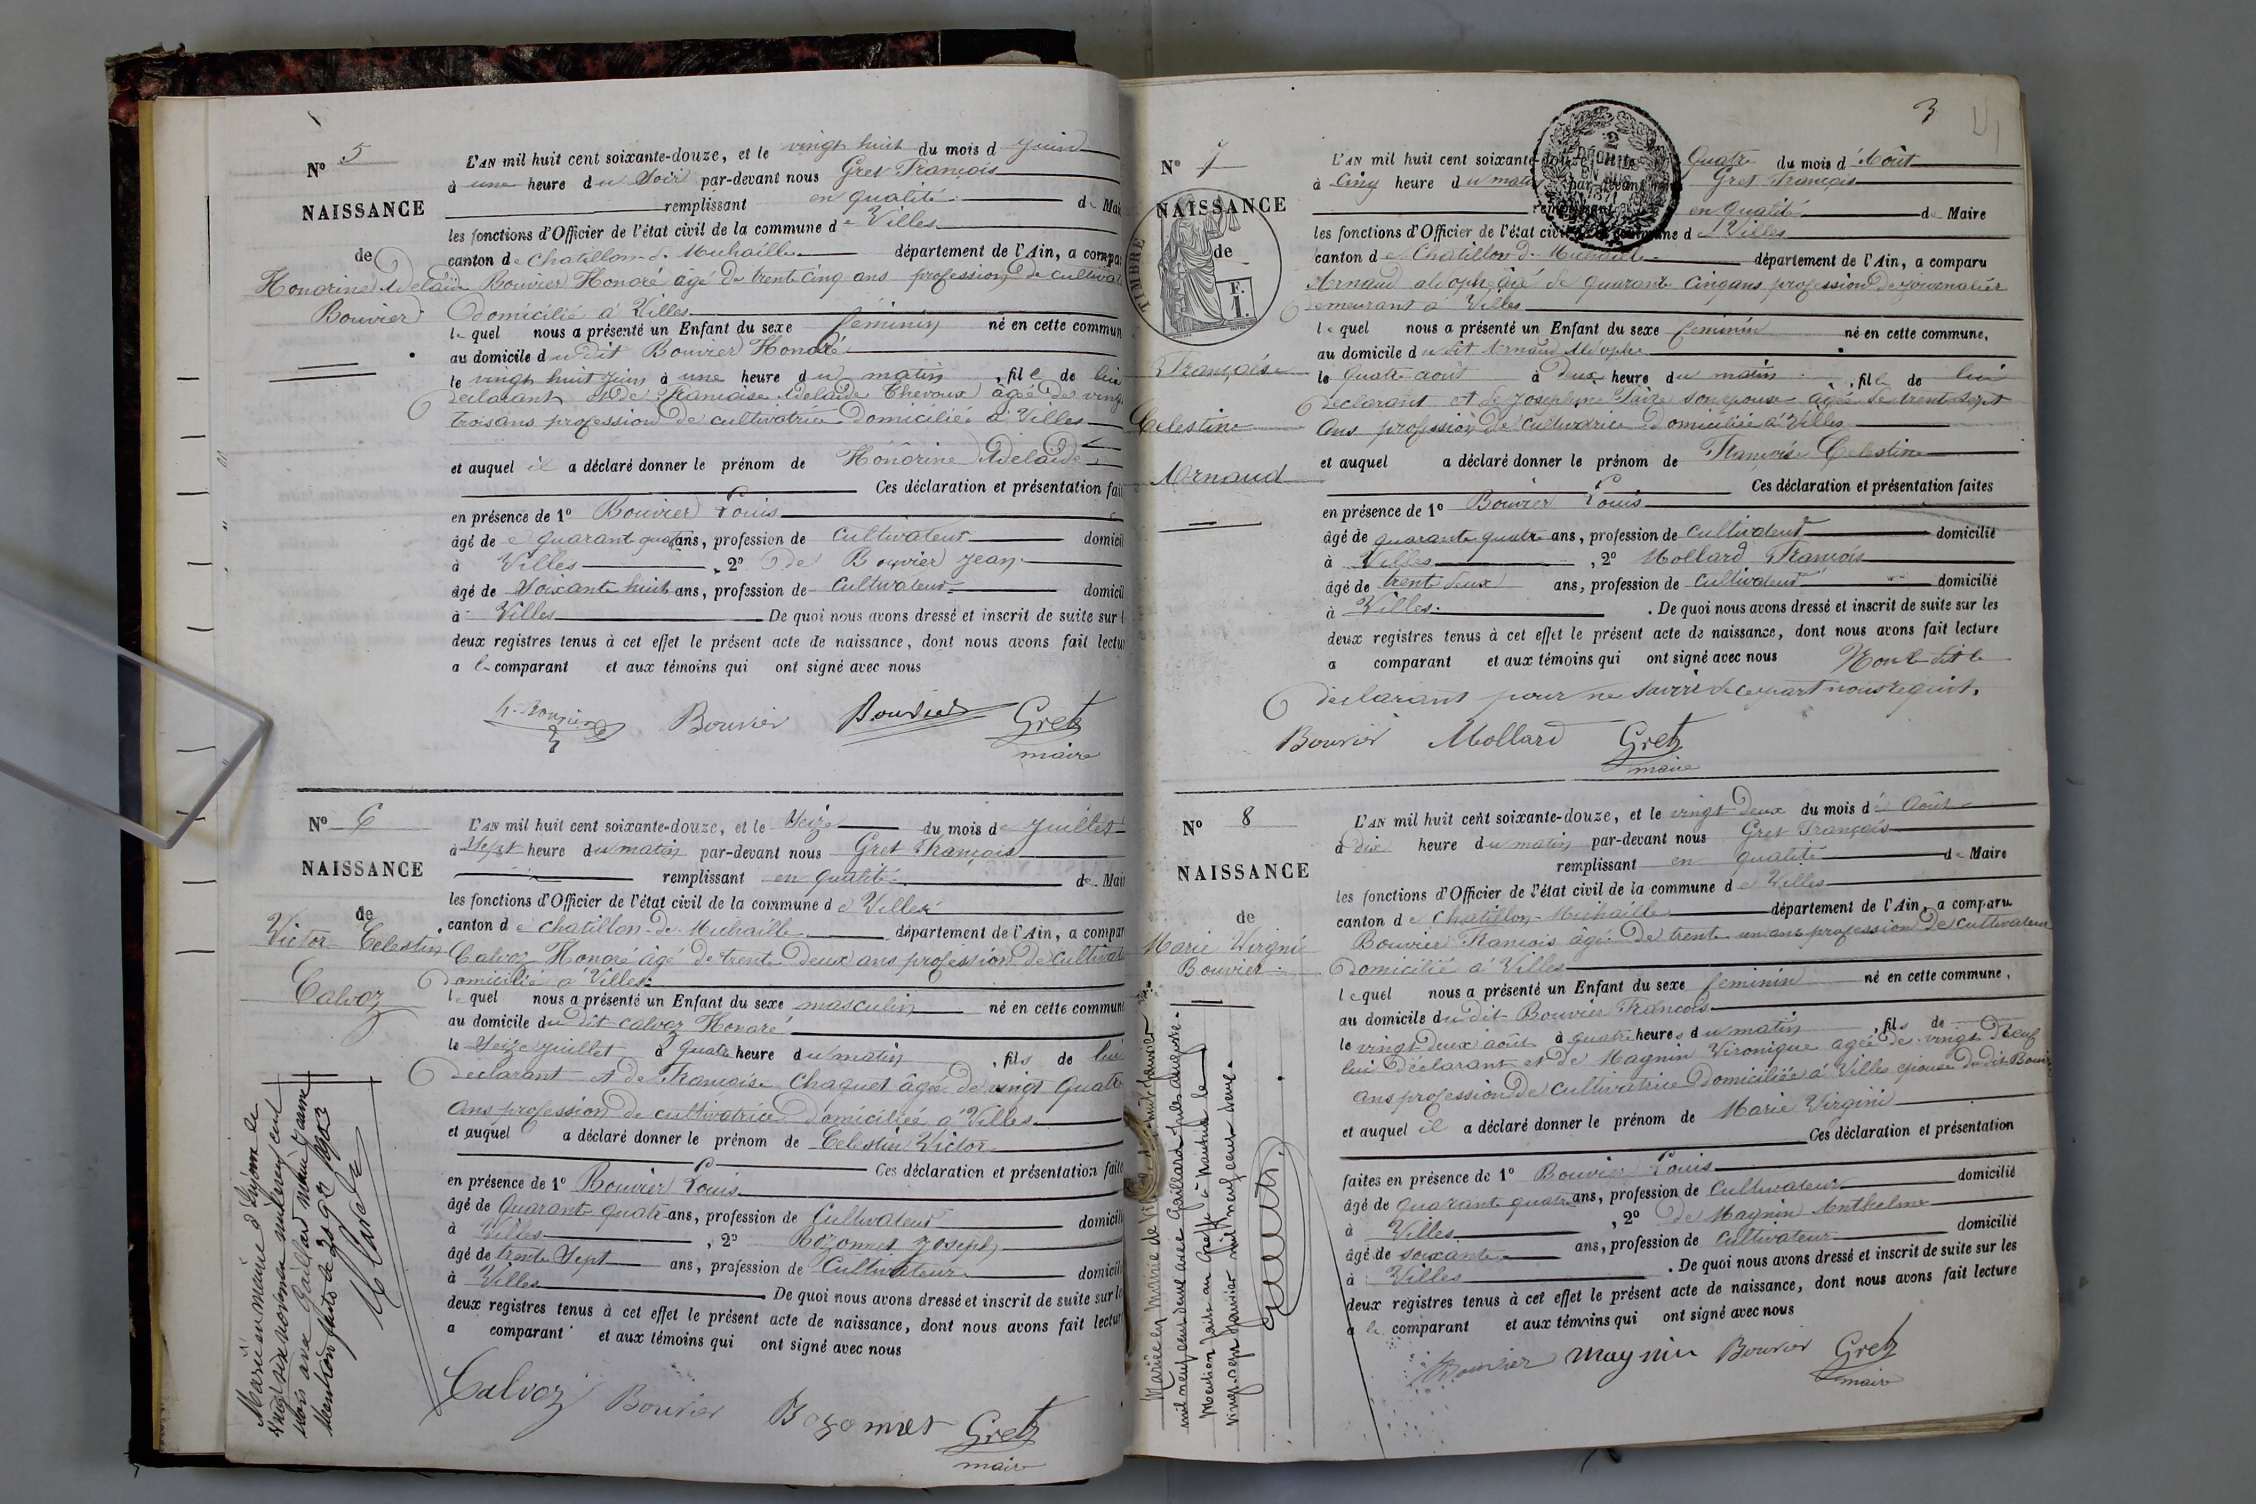 N° 5
NAISSANCE
de
Honorine Adelaïde
Bouvier
L'AN mil huit cent soixante-douze, et le vingt huit du mois d juin
à une heure du Soir par-devant nous Gret François
remplissant en qualité de Mai
les fonctions d'Officier de l'état civil de la commune de Villes
canton de Chatillon-de-Michaille département de l'Ain, a compa
Bouvier Honoré âgé de trente cinq ans profession de cultivat
domicilié à Villes
le quel nous a présenté un Enfant du sexe féminin né en cette commun
au domicile du dit Bouvier Honoré
le vingt huit juin à une heure du matin, fille de lui
déclarant et de Françoise Adelaide Thevoux âgée de vingt
trois ans profession de cultivatrice domiciliée à Villes
et auquel il a déclaré donner le prénom de Honorine Adelaide
Ces déclaration et présentation fait
en présence de 1° Bouvier Louis
âgé de quarante quatre ans, profession de cultivateur domicil
à Villes, 2° de Bouvier Jean
âgé de Soixante huit ans, profession de cultivateur domicil
à Villes De quoi nous avons dressé et inscrit de suite sur l
deux registres tenus à cet effet le présent acte de naissance, dont nous avons fait lectu
a le comparant et aux témoins qui ont signé avec nous
Bouvier Bouvier Gret
maire
N° 6
NAISSANCE
de
Victor Celestin
Calvoz
L'AN mil huit cent soixante-douze, et le Seize du mois de juillet
à Sept heure du matin par-devant nous Gret François
remplissant en qualité de Mai
les fonctions d'Officier de l'état civil de la commune de Villes
canton de chatillon-de-Michaille département de l'Ain, a compar
Calvoz Honoré âgé de trente deux ans profession de cultivat
domicilié à Villes
le quel nous a présenté un Enfant du sexe masculin né en cette commun
au domicile du dit Calvoz Honoré
le Seize juillet à quatre heure du matin, fils de lui
déclarant et de Françoise Chaquet âgée de vingt quatre
ans profession de cultivatrice domiciliée à Villes
et auquel a déclaré donner le prénom de Celestin Victor
Ces déclaration et présentation faite
en présence de 1° Bouvier Louis
âgé de Quarante quatre ans, profession de Cultivateur domicili
à Villes, 2° Bozonnet Joseph
âgé de trente Sept ans, profession de Cultivateur domicili
à Villes De quoi nous avons dressé et inscrit de suite sur le
deux registres tenus à cet effet le présent acte de naissance, dont nous avons fait lectur
a comparant et aux témoins qui ont signé avec nous
Calvoz Bouvier Bozonnet Gret
maire
Marié en mairie d'Injoux le
vingt six novembre mil neuf cent
trois avec Gaillard Marie Jeanne
Mention faite le 30 9bre 1903
3
N° 7
NAISSANCE
de
TIMBRE
F.
1.
Françoise
Celestine
Arnaud
2
DÉCIMES
EN SUS
1871
L'AN mil huit cent soixante-douze, et le Quatre du mois d'Août
à Cinq heure du matin par-devant nous Gret François
remplissant en qualité de Maire
les fonctions d'Officier de l'état civil de la commune de Villes
canton de Chatillon-de-Michaille département de l'Ain, a comparu
Arnaud aléophe âgé de quarante cinq ans profession de journalier
demeurant à Villes
le quel nous a présenté un Enfant du sexe feminin né en cette commune,
au domicile du dit Arnaud Aléophe
le Quatre août à deux heure du matin, fille de lui
déclarant et de Josephine son épouse âgée de trente sept
ans profession de cultivatrice domiciliée à Villes
et auquel a déclaré donner le prénom de Françoise Celestine
Ces déclaration et présentation faites
en présence de 1° Bouvier Louis
âgé de quarante quatre ans, profession de cultivateur domicilié
à Villes, 2° Mollard François
âgé de trente deux ans, profession de cultivateur domicilié
à Villes. De quoi nous avons dressé et inscrit de suite sur les
deux registres tenus à cet effet le présent acte de naissance, dont nous avons fait lecture
a comparant et aux témoins qui ont signé avec nous Non le dit le
déclarant pour ne savoir de ce part nous requit.
Bouvier Mollard Gret
maire
N° 8
NAISSANCE
de
Marie Virginie
Bouvier
L'AN mil huit cent soixante-douze, et le vingt-deux du mois d'août
à dix heure du matin par-devant nous Gret François
remplissant en qualité de Maire
les fonctions d'Officier de l'état civil de la commune de Villes
canton de Chatillon-Michaille département de l'Ain, a comparu
Bouvier François âgé de trente un ans profession de cultivateur
domicilié à Villes
le quel nous a présenté un Enfant du sexe feminin né en cette commune,
au domicile du dit Bouvier François
le vingt-deux août à quatre heures du matin, fils de
lui déclarant et de Magnin Vironique agée de vingt neuf
ans profession de cultivatrice domiciliée à Villes épouse du dit Bouvier
et auquel il a déclaré donner le prénom de Marie Virginie
Ces déclaration et présentation
faites en présence de 1° Bouvier Louis domicilié
âgé de quarante quatre ans, profession de Cultivateur
à Villes, 2° de Magnin Anthelme
âgé de soixante ans, profession de cultivateur domicilié
à Villes. De quoi nous avons dressé et inscrit de suite sur les
deux registres tenus à cet effet le présent acte de naissance, dont nous avons fait lecture
a le comparant et aux témoins qui ont signé avec nous
Bouvier Magnin Bouvier Gret
maire
Mariée en Mairie de Villes janvier
mil neuf cent deux avec Gaillard Jules
Mention faite au Greffe à Nantua le
vingt-sept janvier mil neuf cent deux.